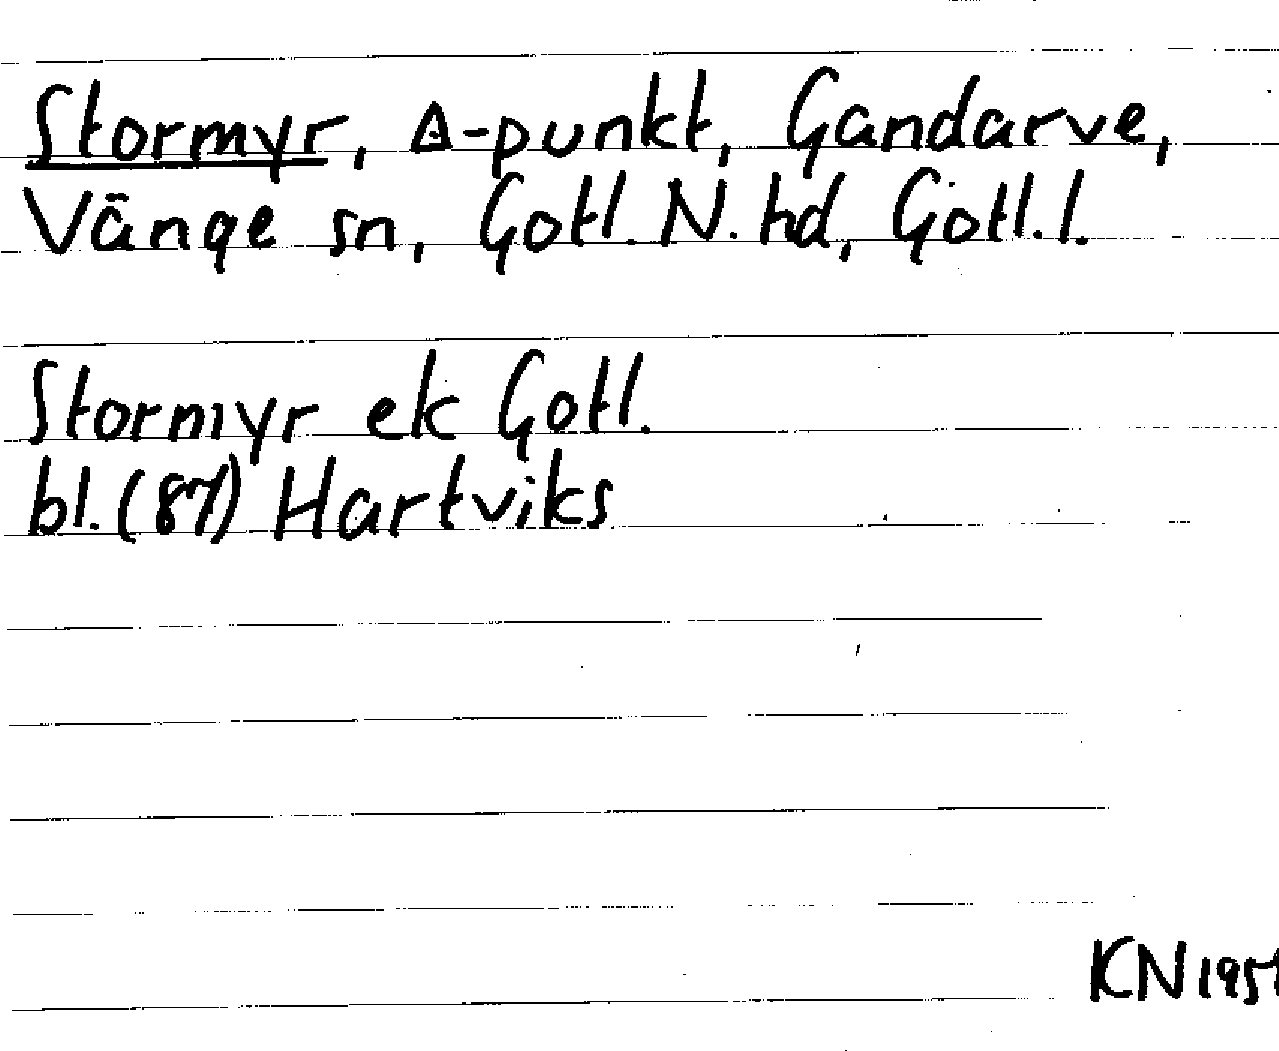 Stormyr, ∆-punkt, Gandarve,
Vänge sn, Gotl. N. hd, Gotl. l.
Stormyr ek Gotl.
bl. (87) Hartviks
KN